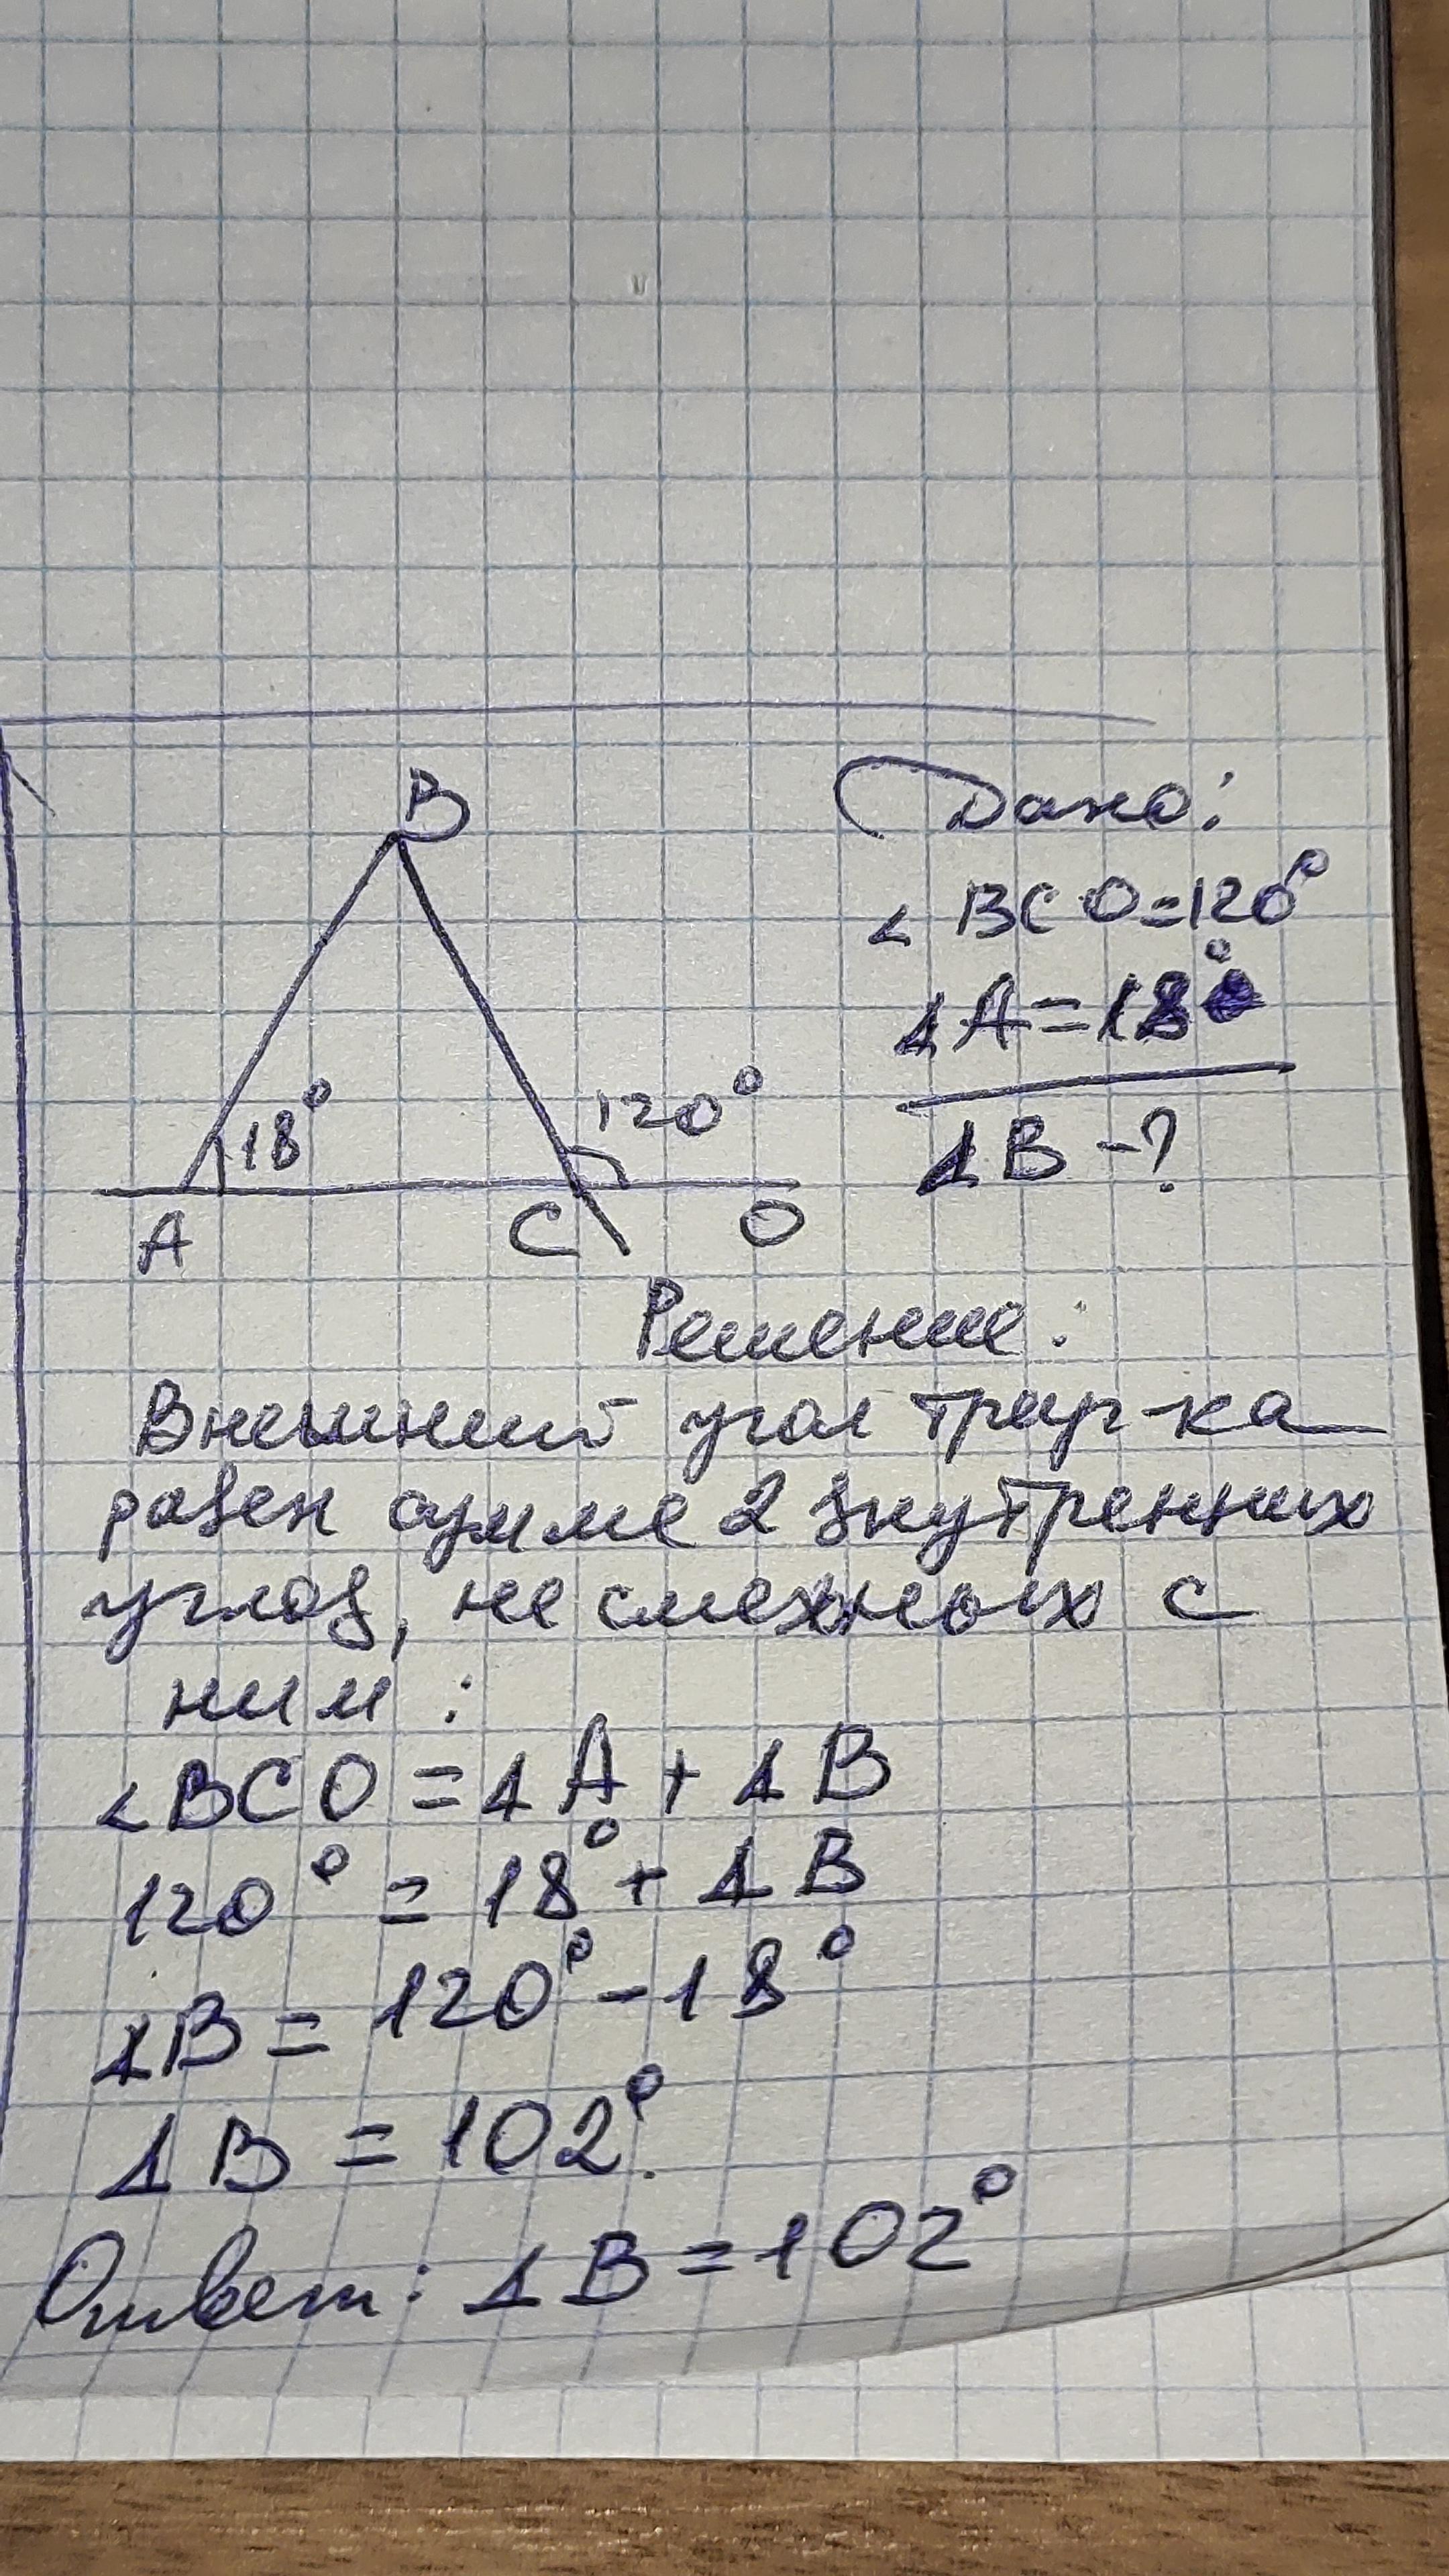 B
18°
120°
A
C
O
Дано:
∠ BCO=120°
∠A=18°
∠B-?
Решение:
Внешний угол треуг-ка
равен сумме 2 внутренних
углов, не смежных с
ним:
∠BCO=∠A+∠B
120°=18°+∠B
∠B=120°-18°
∠B=102°.
Ответ: ∠B=102°